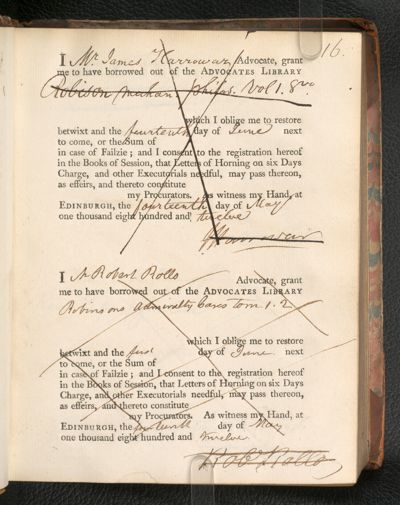 16.
I Mr. James Harrowar, Advocate, grant
me to have borrowed out of the ADVOCATES LIBRARY
Robison mechan: philos. Vol 1. 8vo.
which I oblige me to restore
betwixt and the fourteenth day of June next
to come, or the Sum of
in case of Failzie; and I consent to the registration hereof
in the Books of Session, that Letters of Horning on six Days
Charge, and other Executorials needful, may pass thereon,
as effeirs, and thereto constitute
my Procurators. As witness my Hand, at
EDINBURGH, the fourteenth day of May
one thousand eight hundred and twelve
J Harrowar
I Mr Robert Rollo Advocate, grant
me to have borrowed out of the ADVOCATES LIBRARY
Robinsons Admiralty Cases tom 1. 2
which I oblige me to restore
betwixt and the first day of June next
to come, or the Sum of
in case of Failzie; and I consent to the registration hereof
in the Books of Session, that Letters of Horning on six Days
Charge, and other Executorials needful, may pass thereon,
as effeirs, and thereto constitute
my Procurators. As witness my Hand, at
EDINBURGH, the day of May
one thousand eight hundred and twelve
Rob Rollo